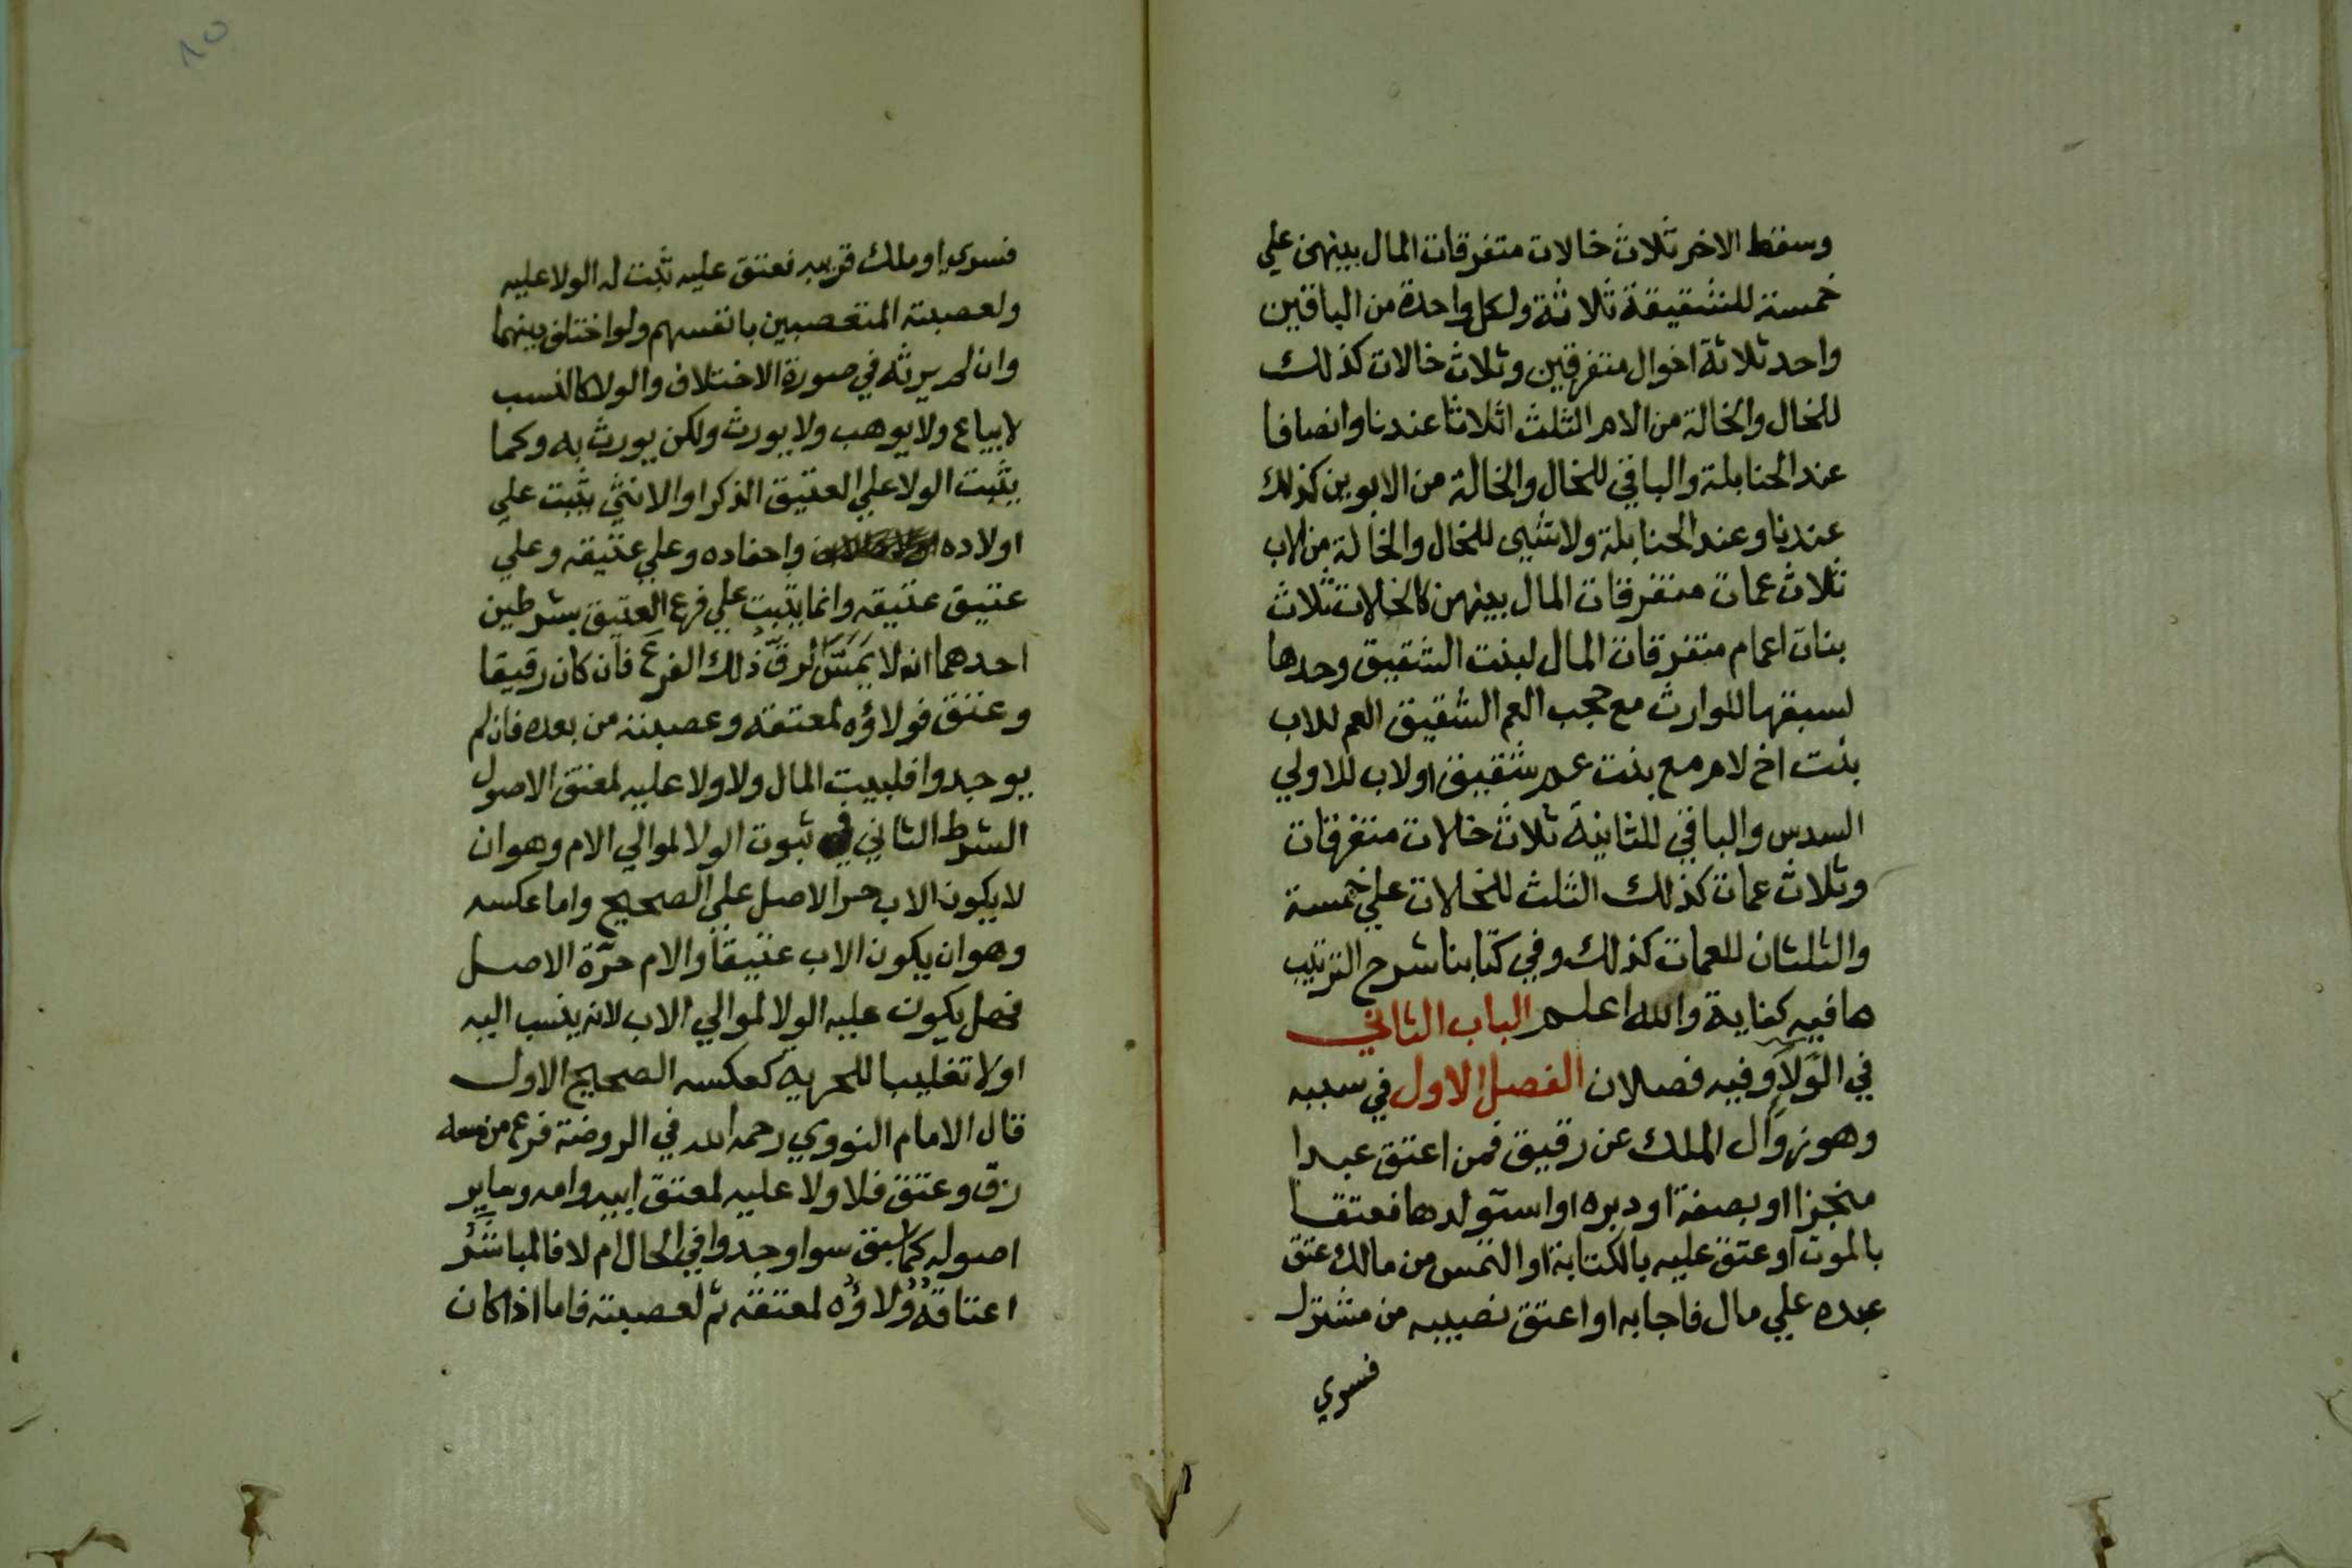 وسقط الاخر ثلاث خالات متفرقات المال بينهن علي
خمسة للشقيقة ثلاثة ولكل واحدة من الباقين
واحد ثلاثة اخوال متفرقين وثلاث خالات كذلك
للخال والخالة من الام الثلث اثلاثا عندنا وانصافا
عند الحنابلة والباقي للخال والخالة من الابوين كذلك
عندنا وعند الحنابلة ولا شي للخال والخالة من الاب
ثلاث عمات متفرقات المال بينهن كالخالات ثلاث
بنات اعمام متفرقات المال لبنت الشقيق وحدها
لسبقها للوارث مع حجب العم الشقيق العم للاب
بنت اخ لام مع بنت عم شقيق اولاب للاولي
السدس والباقي للثانية ثلاث خالات متفرقات
وثلاث عمات كذلك الثلث للخالات علي خمسة
والثلثان للعمات كذلك وفي كتابنا شرح الترتيب
ما فيه كفاية والله اعلم الباب الثاني
في الوَلَا وفيه فصلان الفصل الاول في سببه
وهو زوال الملك عن رقيق فمن اعتق عبدا
منجزا او بصفة او دبره او استولدها فعتقا
بالموت او عتق عليه بالكتابة او التمس من مالك عتق
عبده علي مال فاجابه او اعتق نصيبه من مشترك
فسري
١٥
فسري او ملك قريبه فعتق عليه ثبت له الولا عليه
ولعصبته المتعصبين بانفسهم ولو اختلف دينهما
وان لم يرثه في صورة الاختلاف والولا كالنسب
لا يباع ولا يوهب ولا يورث ولكن يورث به وكما
يثبت الولا علي العتيق الذكر او الانثي يثبت علي
اولاده واحفاده وعلي عتيقه وعلي
عتيق عتيقه وانما يثبت علي فرع العتيق بشرطين
احدهما انه لا يَمَسَّ الرقُّ ذلك الفرعَ فان كان رقيقا
وعتق فولاؤه لمعتقه وعصبته من بعده فان لم
يوجدوا فلبيت المال ولا ولا عليه لمعتق الاصول
الشرط الثاني في ثبوت الولا لموالي الام وهو ان
لا يكون الاب حر الاصل علي الصحيح واما عكسه
وهو ان يكون الاب عتيقًا والام حرّة الاصل
فهل يكون عليه الولا لموالي الاب لانه ينسب اليه
اولا تغليبا للحرية كعكسه الصحيح الاول
قال الامام النووي رحمه الله في الروضة فرع من مسه
رق وعتق فلا ولا عليه لمعتق ابيه وامه وساير
اصوله كما سبق سوا وجدوا في الحال ام لا فالمباشَرُ
اعتاقُه ولاؤُه لمعتقه ثم لعصبته فاما اذا كان